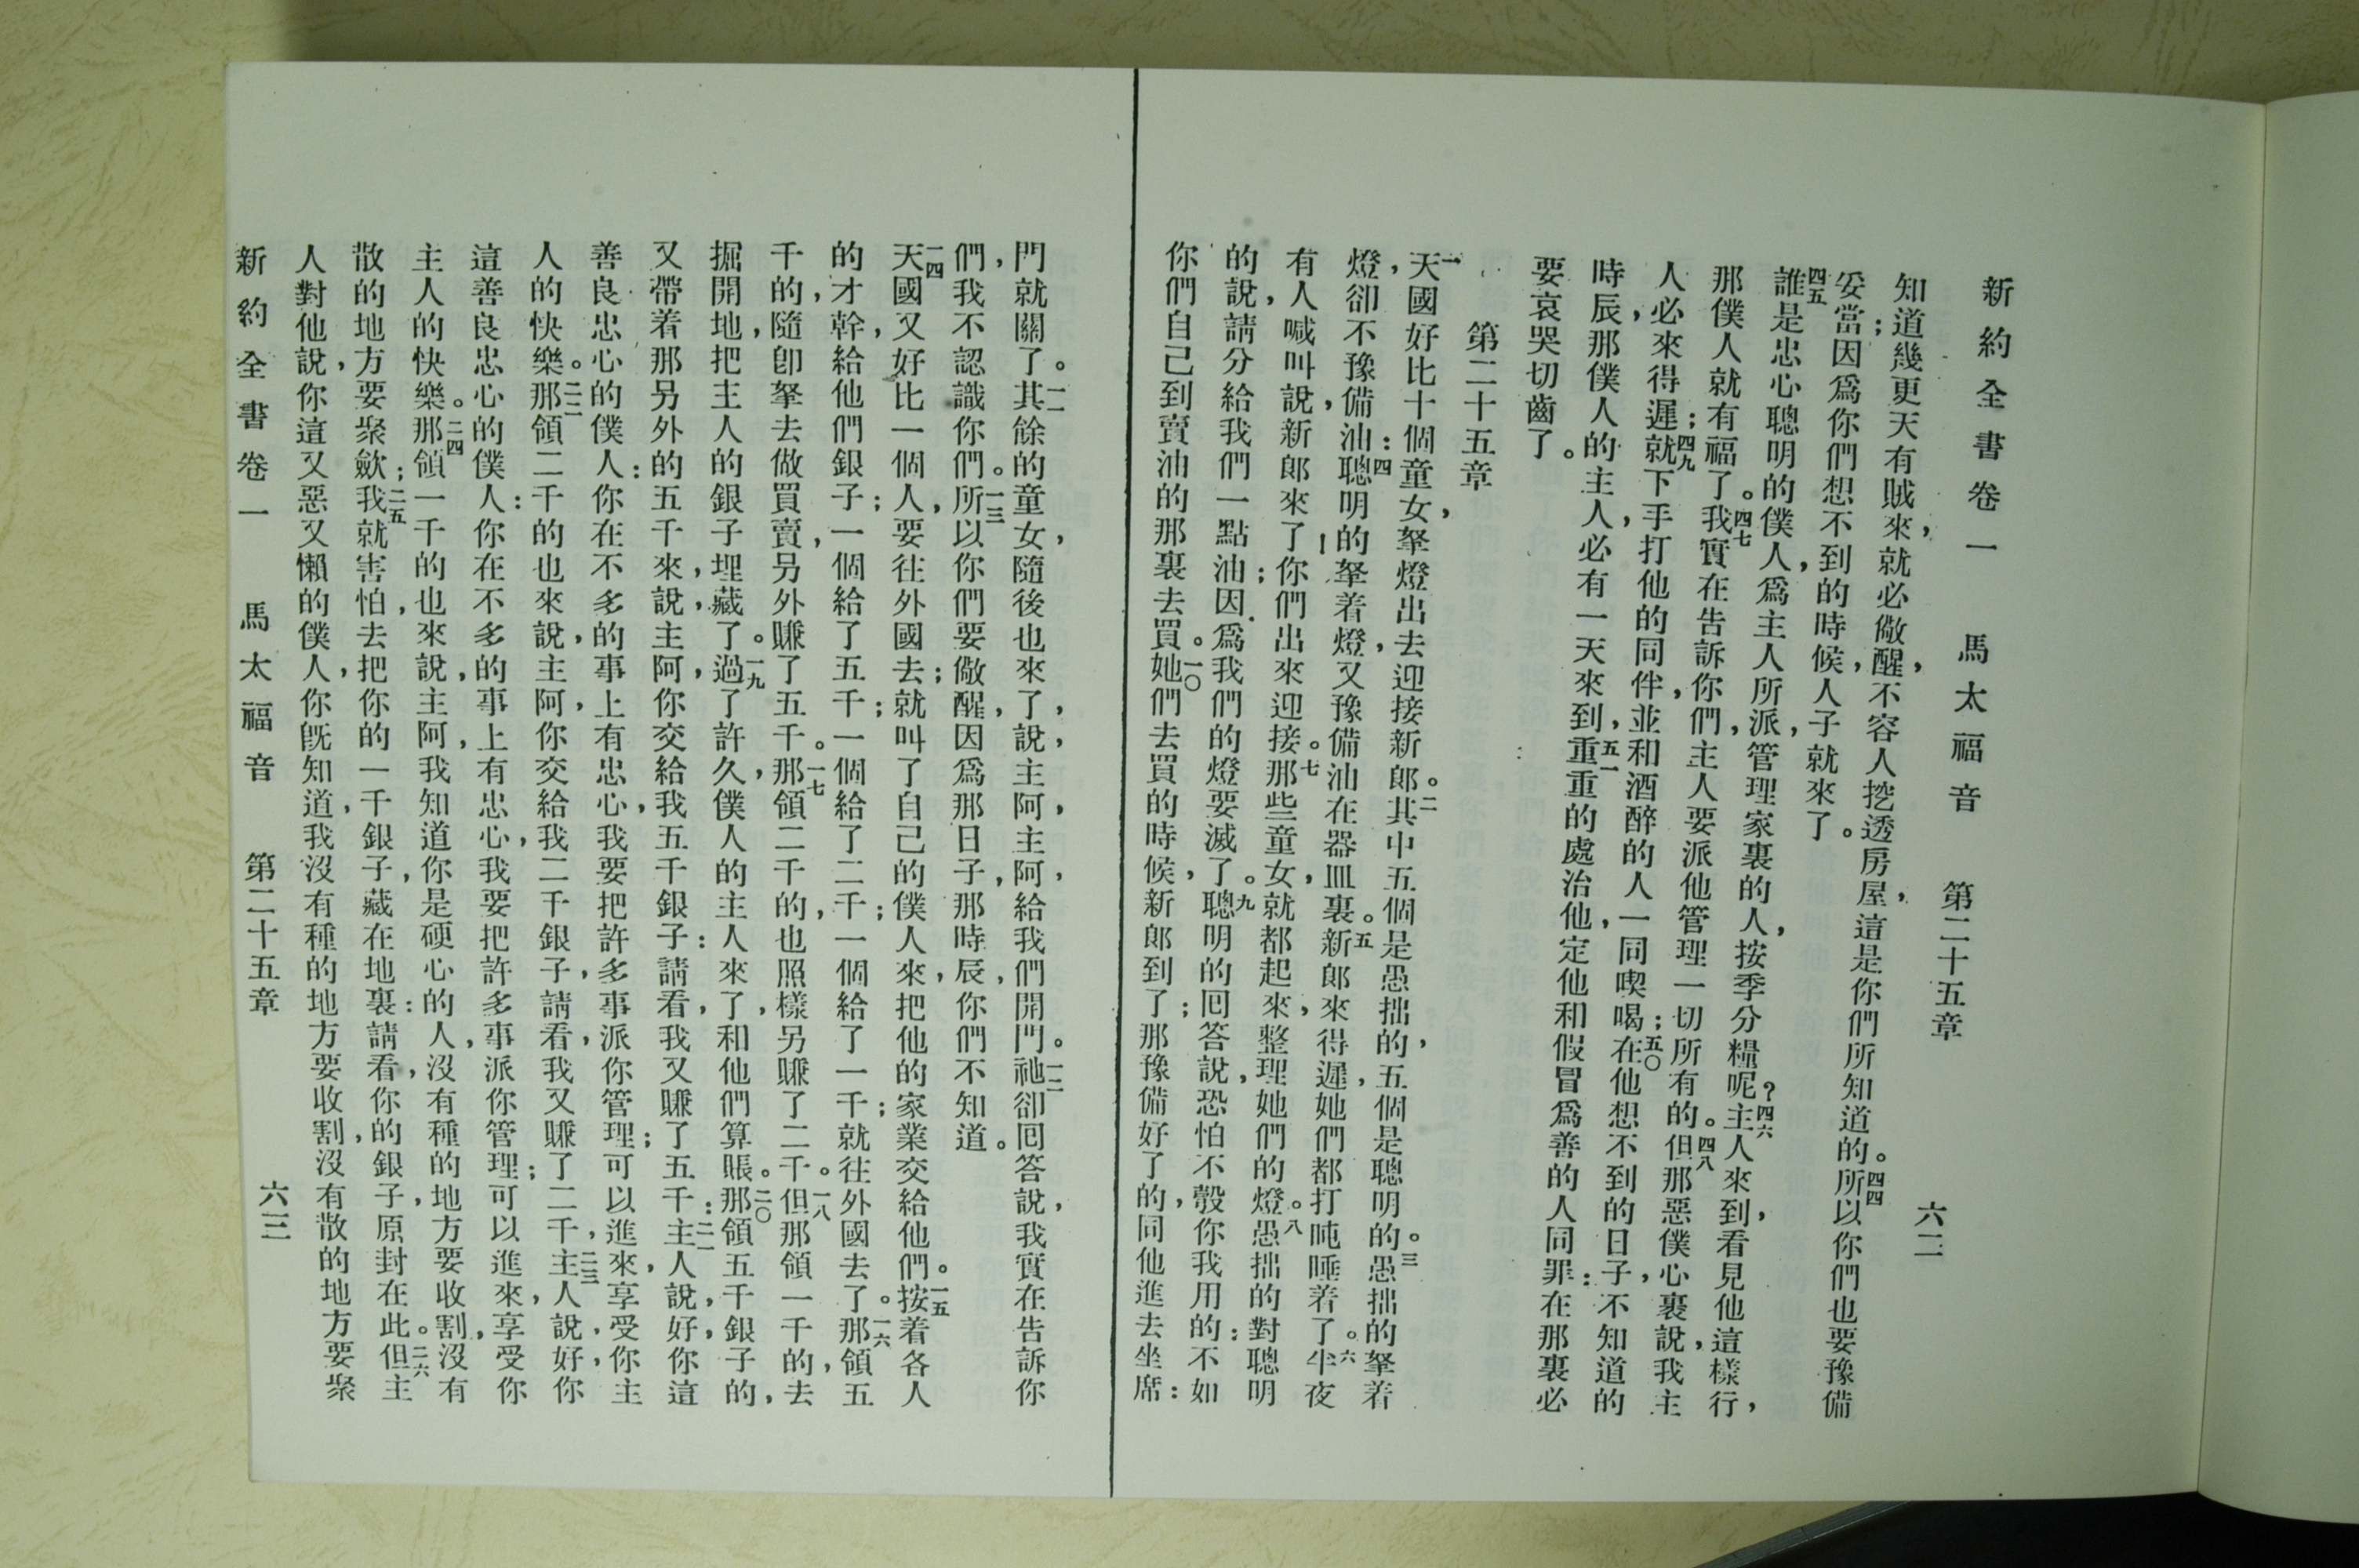 新約全書卷一 馬太福音 第二十五章 六二
知道幾更天有賊來,就必儆醒,不容人挖透房屋,這是你們所知道的。四四所以你們也要豫備
妥當;因爲你們想不到的時候,人子就來了。
四五誰是忠心聰明的僕人,爲主人所派,管理家裏的人,按季分糧呢?四六主人來到,看見他這樣行,
那僕人就有福了。四七我實在告訴你們,主人要派他管理一切所有的。四八但那惡僕心裏說,我主
人必來得遲;四九就下手打他的同伴,並和酒醉的人一同喫喝;五〇在他想不到的日子,不知道的
時辰,那僕人的主人,必有一天來到,五一重重的處治他,定他和假冒爲善的人同罪:在那裏必
要哀哭切齒了。
第二十五章
一天國好比十個童女,拏燈出去迎接新郎。二其中五個是愚拙的,五個是聰明的。三愚拙的拏着
燈,卻不豫備油:四聰明的拏着燈,又豫備油在器皿裏。五新郎來得遲,她們都打盹睡着了。六半夜
有人喊叫說,新郎來了!你們出來迎接。七那些童女,就都起來,整理她們的燈。八愚拙的對聰明
的說,請分給我們一點油;因爲我們的燈要滅了。九聰明的囘答說,恐怕不彀你我用的:不如
你們自己到賣油的那裏去買。一〇她們去買的時候,新郎到了;那豫備好了的,同他進去坐席:
門就關了。一一其餘的童女,隨後也來了,說,主阿,主阿,給我們開門。一二祂卻囘答說,我實在告訴你
們,我不認識你們。一三所以你們要儆醒,因爲那日子,那時辰,你們不知道。
一四天國又好比一個人,要往外國去;就叫了自己的僕人來,把他的家業交給他們。一五按着各人
的才幹,給他們銀子;一個給了五千;一個給了二千;一個給了一千;就往外國去了。一六那領五
千的,隨卽拏去做買賣,另外賺了五千。一七那領二千的,也照樣另賺了二千。一八但那領一千的,去
掘開地,把主人的銀子埋藏了。一九過了許久,僕人的主人來了,和他們算賬。二〇那領五千銀子的,
又帶着那另外的五千來,說,主阿,你交給我五千銀子:請看,我又賺了五千:二一主人說,好,你這
善良忠心的僕人:你在不多的事上有忠心,我要把許多事派你管理;可以進來,享受你主
人的快樂。二二那領二千的也來,說,主阿,你交給我二千銀子,請看,我又賺了二千,二三主人說,好,你
這善良忠心的僕人:你在不多的事上有忠心,我要把許多事派你管理;可以進來,享受你
主人的快樂。二四那領一千的也來,說,主阿,我知道你是硬心的人,沒有種的地方要收割,沒有
散的地方要聚歛;二五我就害怕,去把你的一千銀子,藏在地裏:請看,你的銀子,原封在此。二六但主
人對他說,你這又惡又懶的僕人,你旣知道,我沒有種的地方要收割,沒有散的地方要聚
新約全書卷一 馬太福音 第二十五章 六三